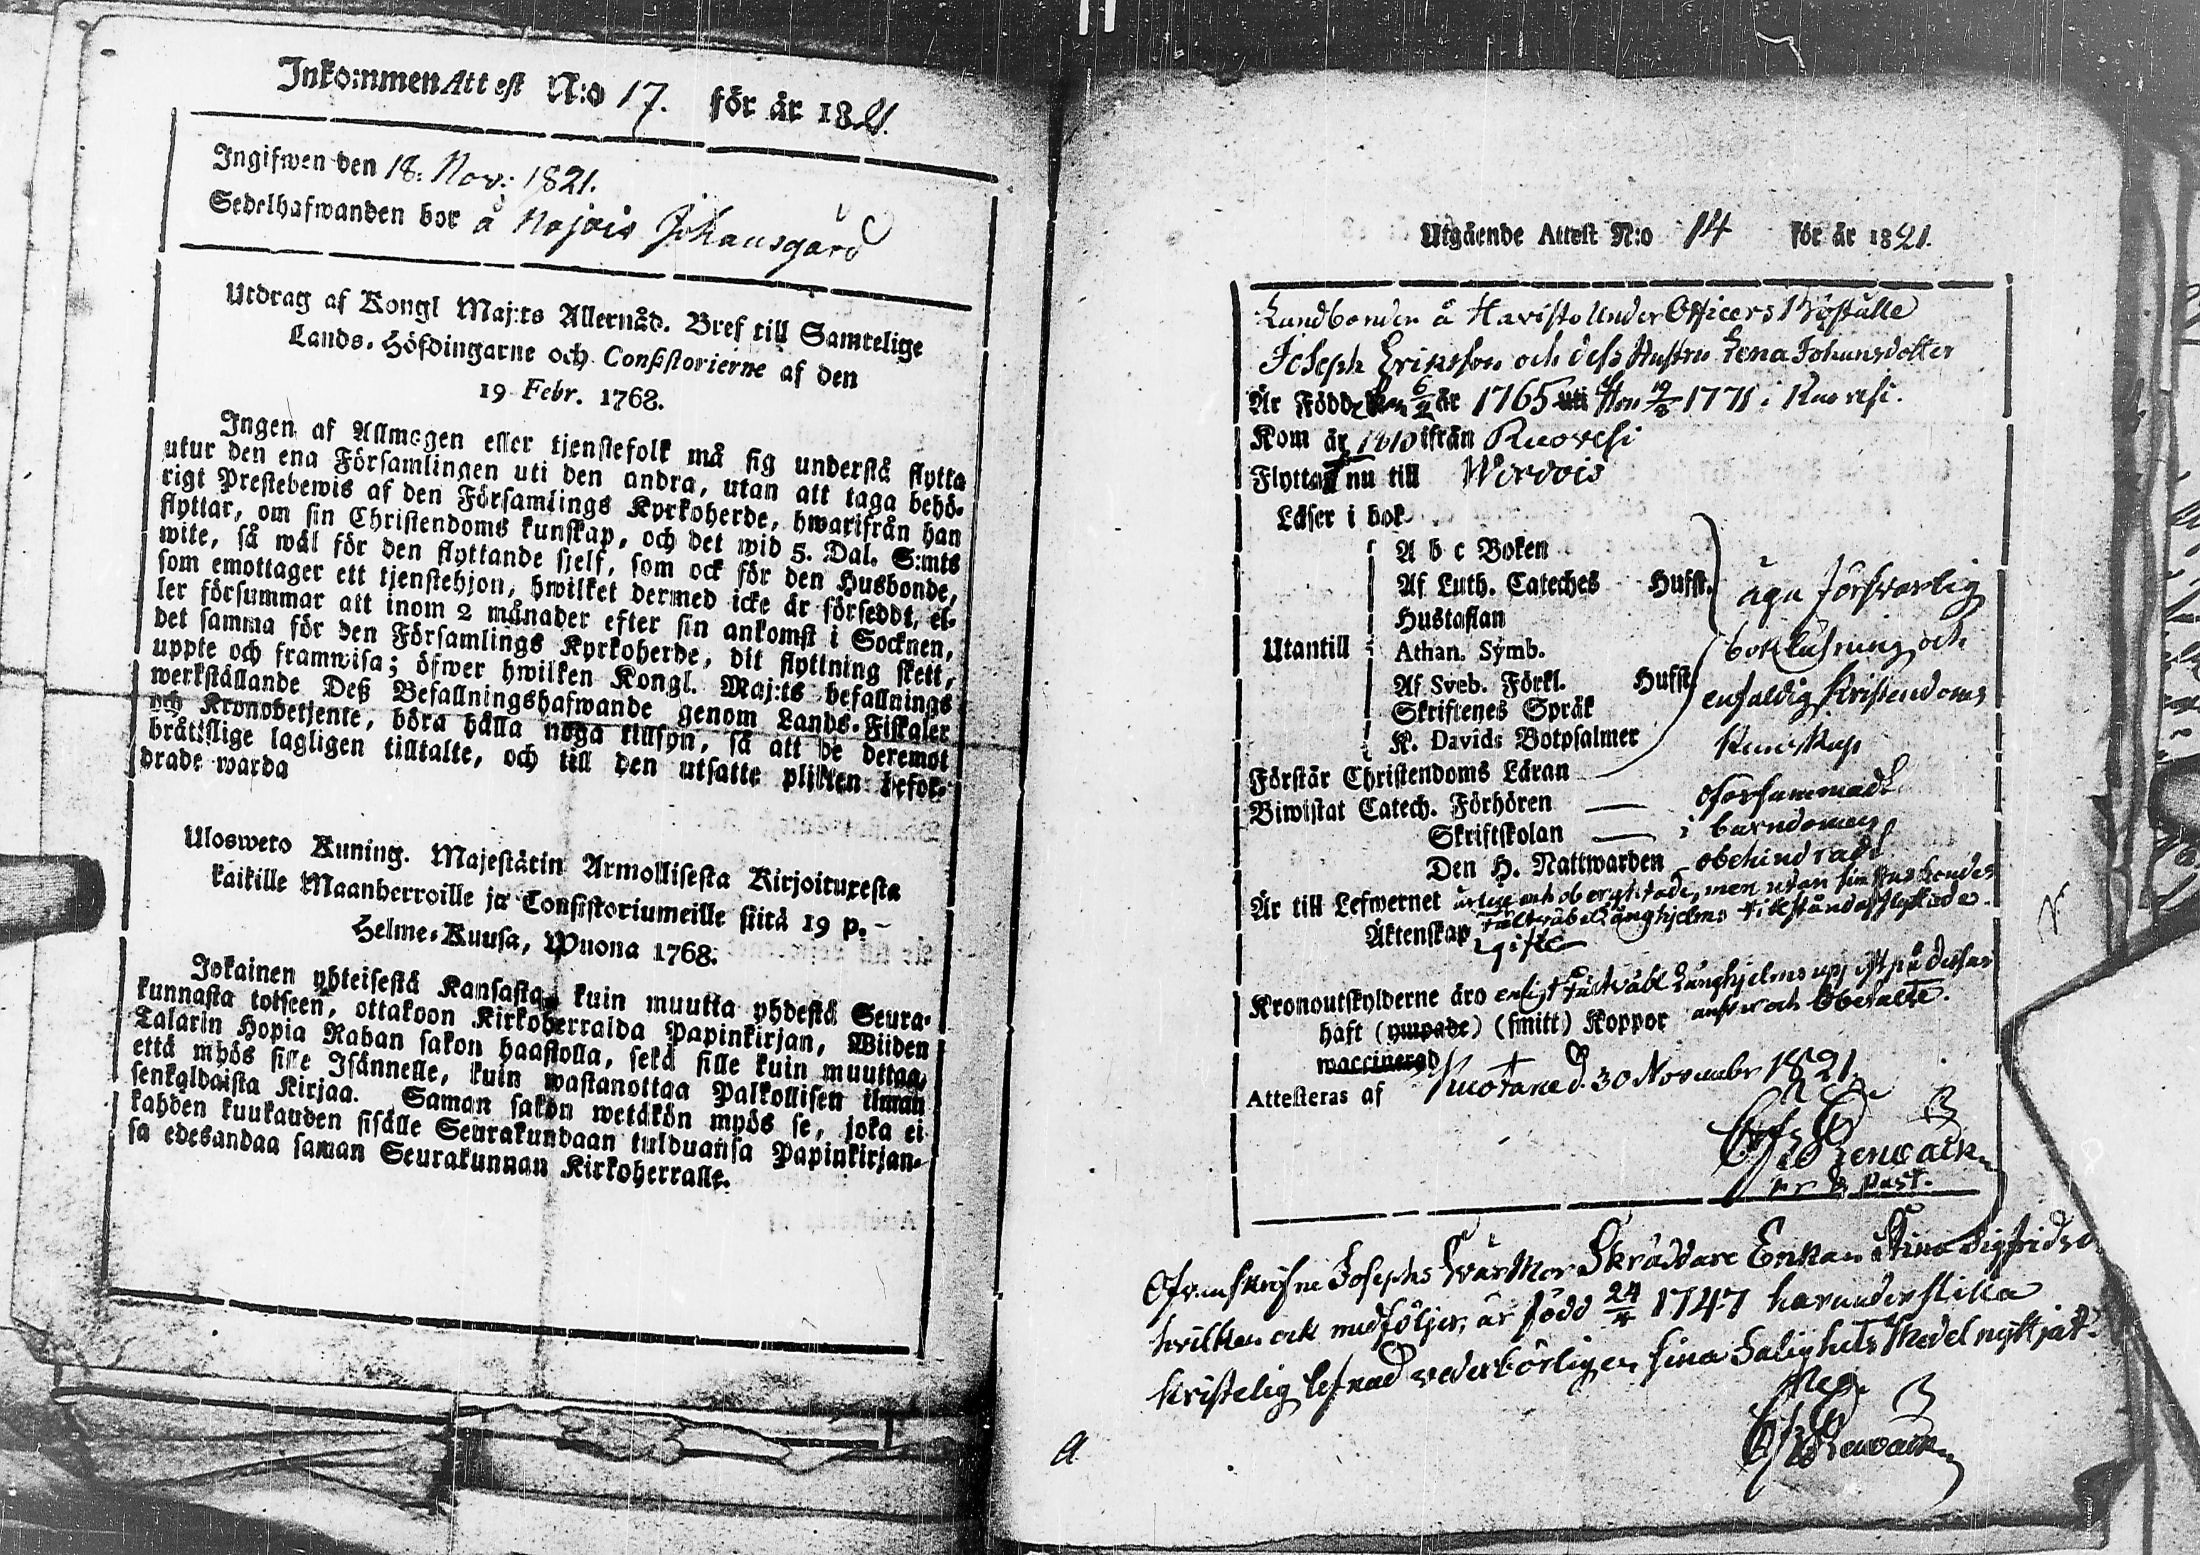 Inkommen Attest N:o 17. för år 1821.
Ingifwen den 18. Nov: 1821.
Sedelhafwanden bor å Hojois Johansgård
Utdrag af Kongl Maj:ts Allernåd. Bref till Samtelige
Lands-Höfdingarne och Consistorierne af den
19 Febr. 1768.
Ingen af Allmogen eller tjenstefolk må sig understå flytta
utur den ena Församlingen uti den andra, utan att taga behö-
rigt Prestebewis af den Församlings Kyrkoherde, hwarifrån han
flyttar, om sin Christendoms kunskap, och det wid 5. Dal. S:mts
wite, så wäl för den flyttande sjelf, som ock för den Husbonde,
som emottager ett tjenstehjon, hwilket dermed icke är försedt, el-
ler försummar att inom 2 månader efter sin ankomst i Socknen,
det samma för den Församlings Kyrkoherde, dit flyttning skett,
uppte och framwisa; öfwer hwilken Kongl. Maj:ts befallnings
werkställande Deß Befallningshafwande genom Lands-Fiskaler
och Kronobetjente, böra hålla noga tillsyn, så att de deremot
bråtsllige lagligen tilltalte, och till den utsatte plikten befor-
drade warda
Uloswero Kuning. Majestätin Armollisesta Kirjoituxesta
kaikille Maanherroille ja Consistoriumeille siitä 19 p.
Helme-Kuusa, Wuona 1768.
Jokainen yhteisestä Kansasta, kuin muutta yhdestä Seura-
kunnasta toiseen, ottakoon Kirkoherralda Papinkirjan, Wiiden
Talarin Hopia Rahan sakon haastolla, sekä sille kuin muuttaa,
että myös sille Isännelle, kuin wastanottaa Palkollisen ilman
senkaldaista Kirjaa. Saman sakon wetäkön myös se, joka ei
kahden kuukauden sisälle Seurakundaan tulduansa Papinkirjan-
sa edesandaa saman Seurakunnan Kirkoherralle.
Utgående Attest N:o 14 för år 1821.
Landbonden å Havisto Under Officers Boställe
Joseph Eriksson och dess Hustru Lena Johansdotter
Är Född den 6/2 år 1765 uti Hon 19/8 1771 i Ruovesi.
Kom år 1810 ifrån Ruovesi
Flyttar nu till Wirdois
Läser i bok
A b c Boken
Af Luth. Cateches Husst. äga försvarlig
Hustaflan
Utantill Athan. Symb. bokläsning och
Af Sveb. Förkl. Husst. enfaldig kristendoms
Skriftenes Språk
K. Davids Botpsalmer kunskap
Förstär Christendoms Läran
Biwistat Catech. Förhören — oförsummadt
Skriftskolan — i barndomen
Den H. Nattwarden obehindrade
Är till Lefwernet ärlige och oberyktade, men utan sin Husbondes
Äktenskap Fältväbel Långhjelms tillstånd afflyttade
gifte
Kronoutskylderne äro enligt Fältväbl Långhjelms uppgift på dessas
haft (ympade) (smitt) Koppor ansvar och Obetalte.
waccinerad
Attesteras af Ruovane d. 30 November 1821
pr & Past.
Ofvanskrifne Josephs Svär Mor Skräddare Enkan Stina Sigfridsd
hvilken ock medföljer, är född 24/4 1747 har under stilla
kristelig lefnad vederbörligen sina Salighets Medel nyttjat.
a